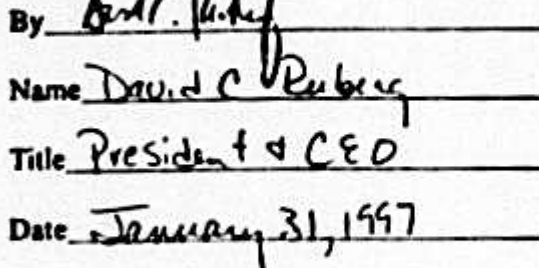 By
Name David C Ruberg
Title President & CEO
Date January 31, 1997